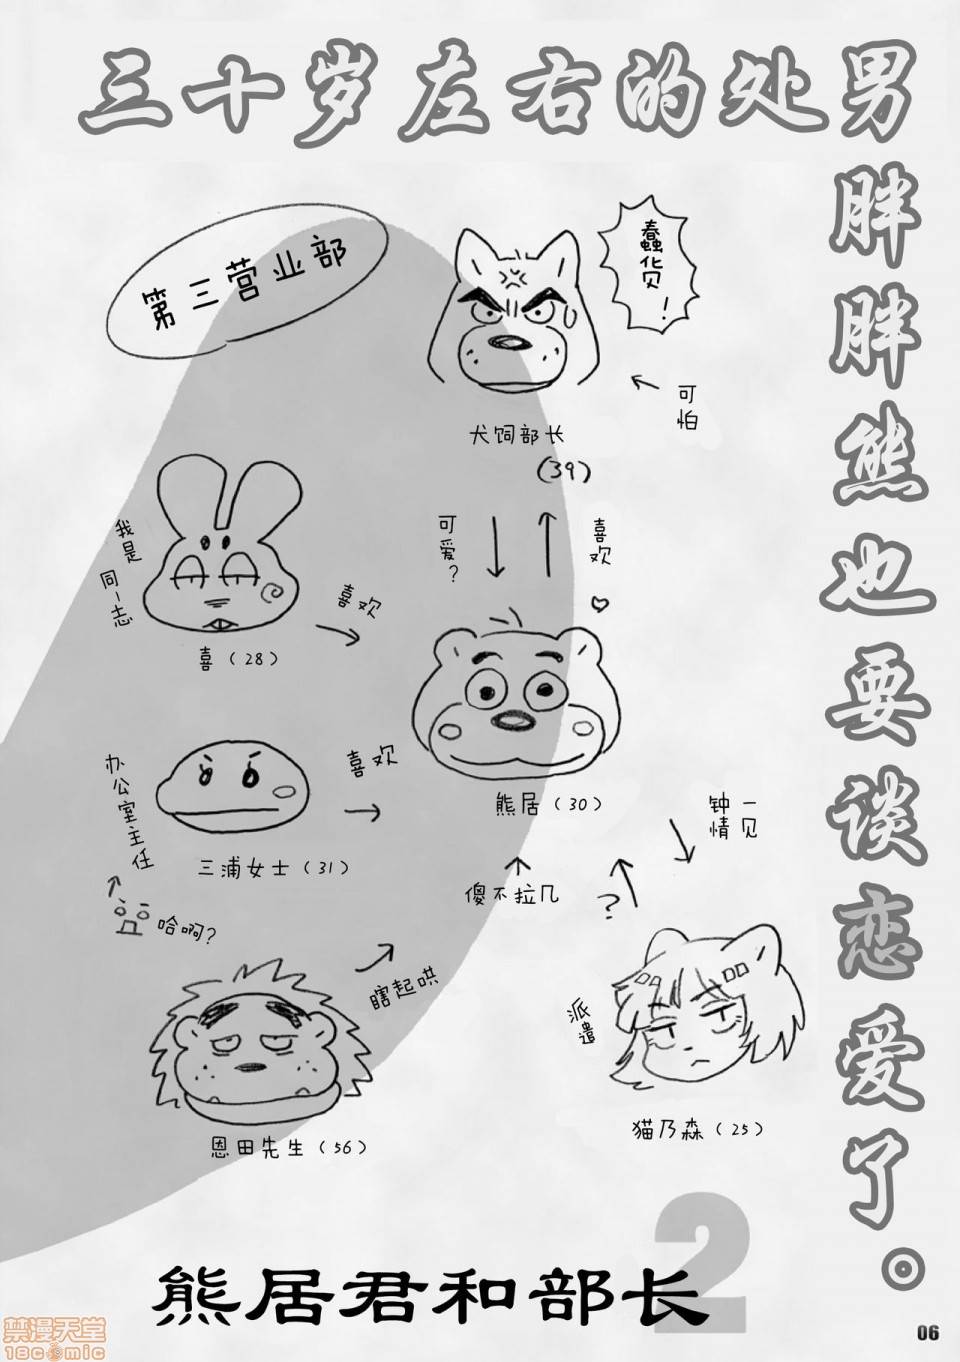 三十岁左右的处男
胖胖熊也要谈恋爱了。
第三营业部
蠢货!
可怕
犬饲部长
(39)
可爱?
喜欢
我是
同一志
喜欢
喜(28)
办公室主任
喜欢
三浦女士(31)
熊居(30)
一见
钟情
傻不拉几
?
哈啊?
瞎起哄
派遣
恩田先生(56)
猫乃森(25)
2
熊居君和部长
禁漫天堂
18comic
06